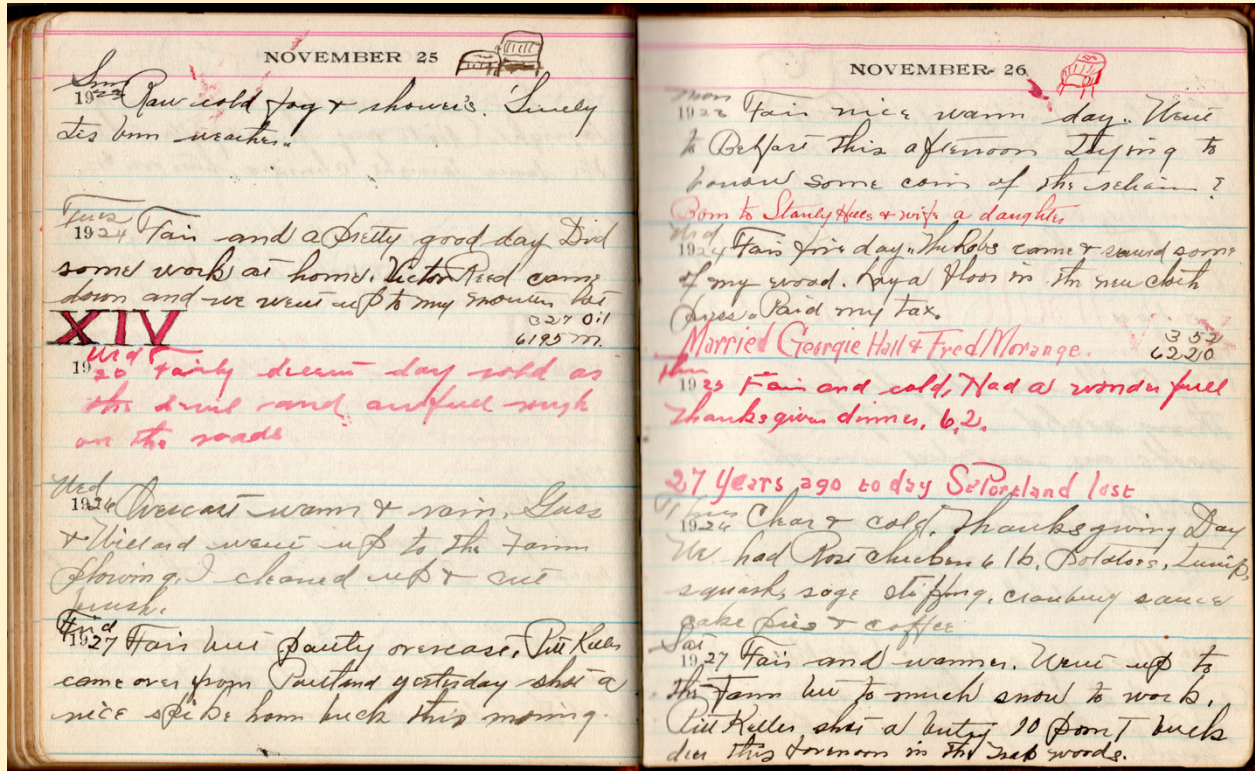 NOVEMBER 25
Sun
19 Raw cold fog & shower's. Lively
weather.
Tues
1924 Fair and a pretty good day Did
some work at home. Victor Reed came
down and we went up to my
327 Oil
6195 m.
XIV
Wed
19 Fairly day cold as
the devil and awfull rough
on the roads
Wed
1926 Overcast warm & rain. Guss
& Willard went up to the Farm
plowing. I cleaned up & cut
brush.
Frid
1927 Fair but partly overcast. Pitt Keller
came over from Portland yesterday shot a
nice spike horn buck this morning.
NOVEMBER 26
19 Fair nice warm day. Went
to Belfast this afternoon trying to
some coin of the ?
Born to Stanly Hills & wife a daughter
Wed
1924 Fair fine day. come & sawed some
of my wood. Lay a floor in the new
Paid my tax.
Married Georgie Hall & Fred Morange.
352
6220
Thur
19 Fair and cold, Had a wonderfull
Thanksgiven dinner. 6,2.
27 Years ago today St Portland lost
19 Clear & cold. Thanksgiving Day
We had Rost chicken 6 lb. Potatoes, Turnip,
squash, sage stiffing, cranbury sauce
cake pies & coffee
Sat
1927 Fair and warmer. Went up to
the Farm but to much snow to work.
Pitt Keller shot a 10 point buck
deer this forenoon in the woods.